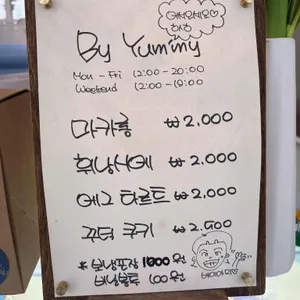 어서오세요♡
By Yummy
Mon - Fri 12:00 - 20:00
Weekend 12:00 - 19:00
마카롱 ₩ 2,000
휘낭시에 ₩ 2,000
에그 타르트 ₩ 2,000
꾸덕 쿠키 ₩ 2,900
* 보냉포장 1000 원
비닐봉투 100 원